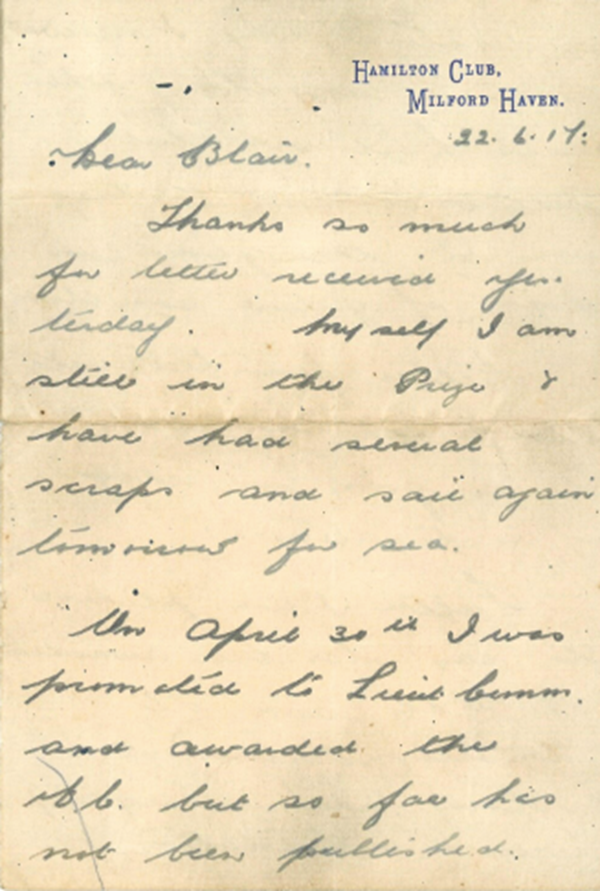 HAMILTON CLUB,
MILFORD HAVEN.
22. 6. 17.
Dear Blair.
Thanks so much
for letter received yes-
terday. Myself I am
still in the Prize &
have had several
scraps and sail again
tomorrow for sea.
On April 30th I was
promoted to Lieut Comm.
and awarded the
V.C. but so far has
not been published.